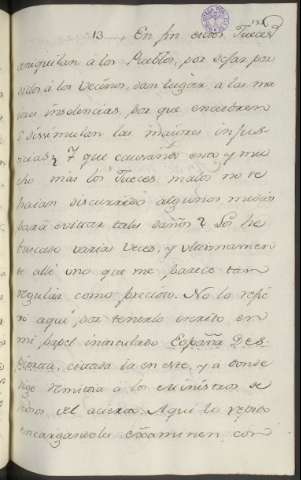 13 En fin estos Jueces
aniquilan a los Pueblos, por dejar per
didos á los Vecinos, dan lugar a las ma
yores insolencias, por que encubren
ò dissimulan las maiores injus
ticias
y mu
cho mas los Jueces malos no se
haian discurrido algunos medios
para evitar tales daños? Yo los he
buscado varias veces, y ultimamen
te allé uno que me parece tan
regular como preciso. No lo repi
to aqui por tenerlo escrito en
mi papel intitulado España Des
citada ia en este, y a donde
remita a los Ministros de
el acierto. Aqui lo repito
encargandoles examinen con